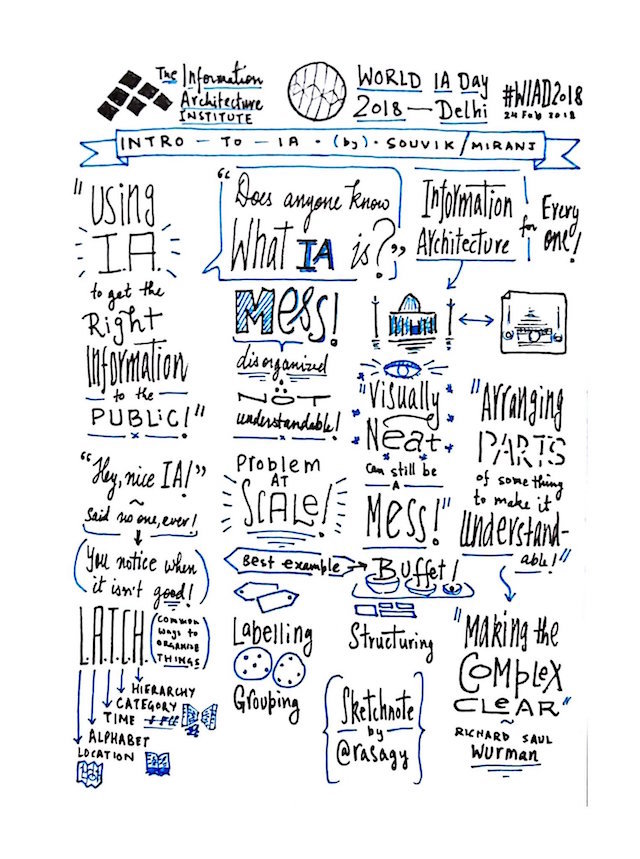 The Information
Architecture
INSTITUTE
WORLD IA Day
2018 — Delhi
#WIAD2018
24 Feb 2018
INTRO - TO - IA • (by) • SOUVIK/MIRANJ
"Using
I.A.
to get the
Right
Information
to the
PUBLIC!"
"Hey, nice IA!"
~
Said no one, ever!
(You notice when
it isn't good!)
L.A.T.C.H.
(COMMON
WAYS TO
ORGANISE
THINGS)
HIERARCHY
CATEGORY
TIME
ALPHABET
LOCATION
"Does anyone know
What IA is?"
Mess!
disorganized
NOT
understandable!
PROBLEM
AT
SCALE!
Best example
Buffet!
Labelling
Grouping
Structuring
Information
Architecture
for
Every
one!
"Visually
Neat
can still be
A
Mess!"
{Sketchnote
by
@rasagy}
"Arranging
PARTS
of something
to make it
Understand-
able!"
"Making the
COMPLEX
CLEAR"
~
RICHARD SAUL
Wurman